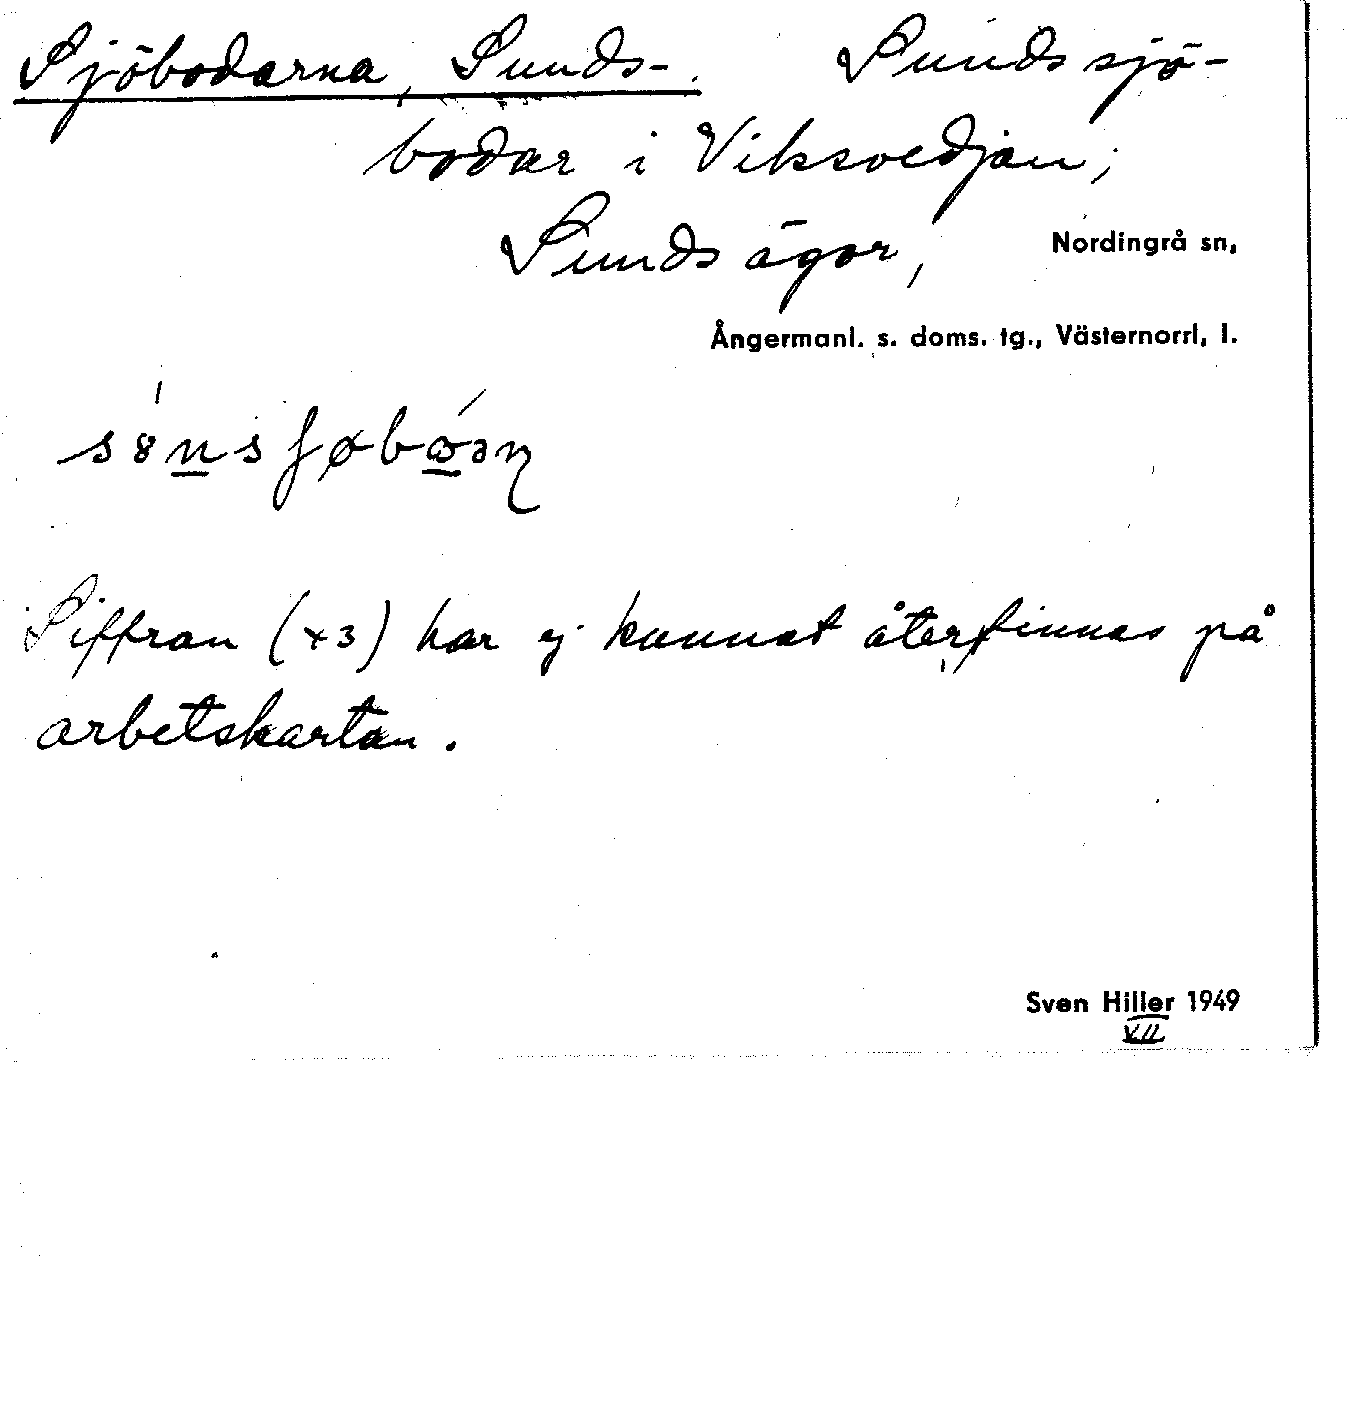 Sjöbodarna, Sunds-. Sundssjö-
bodar i Viksvedjan;
Sunds ägor, Nordingrå sn,
Ångermanl. s. doms. tg., Västernorrl. l.
Siffran (+3) har ej kunnat återfinnas på
arbetskartan.
Sven Hiller 1949
VII